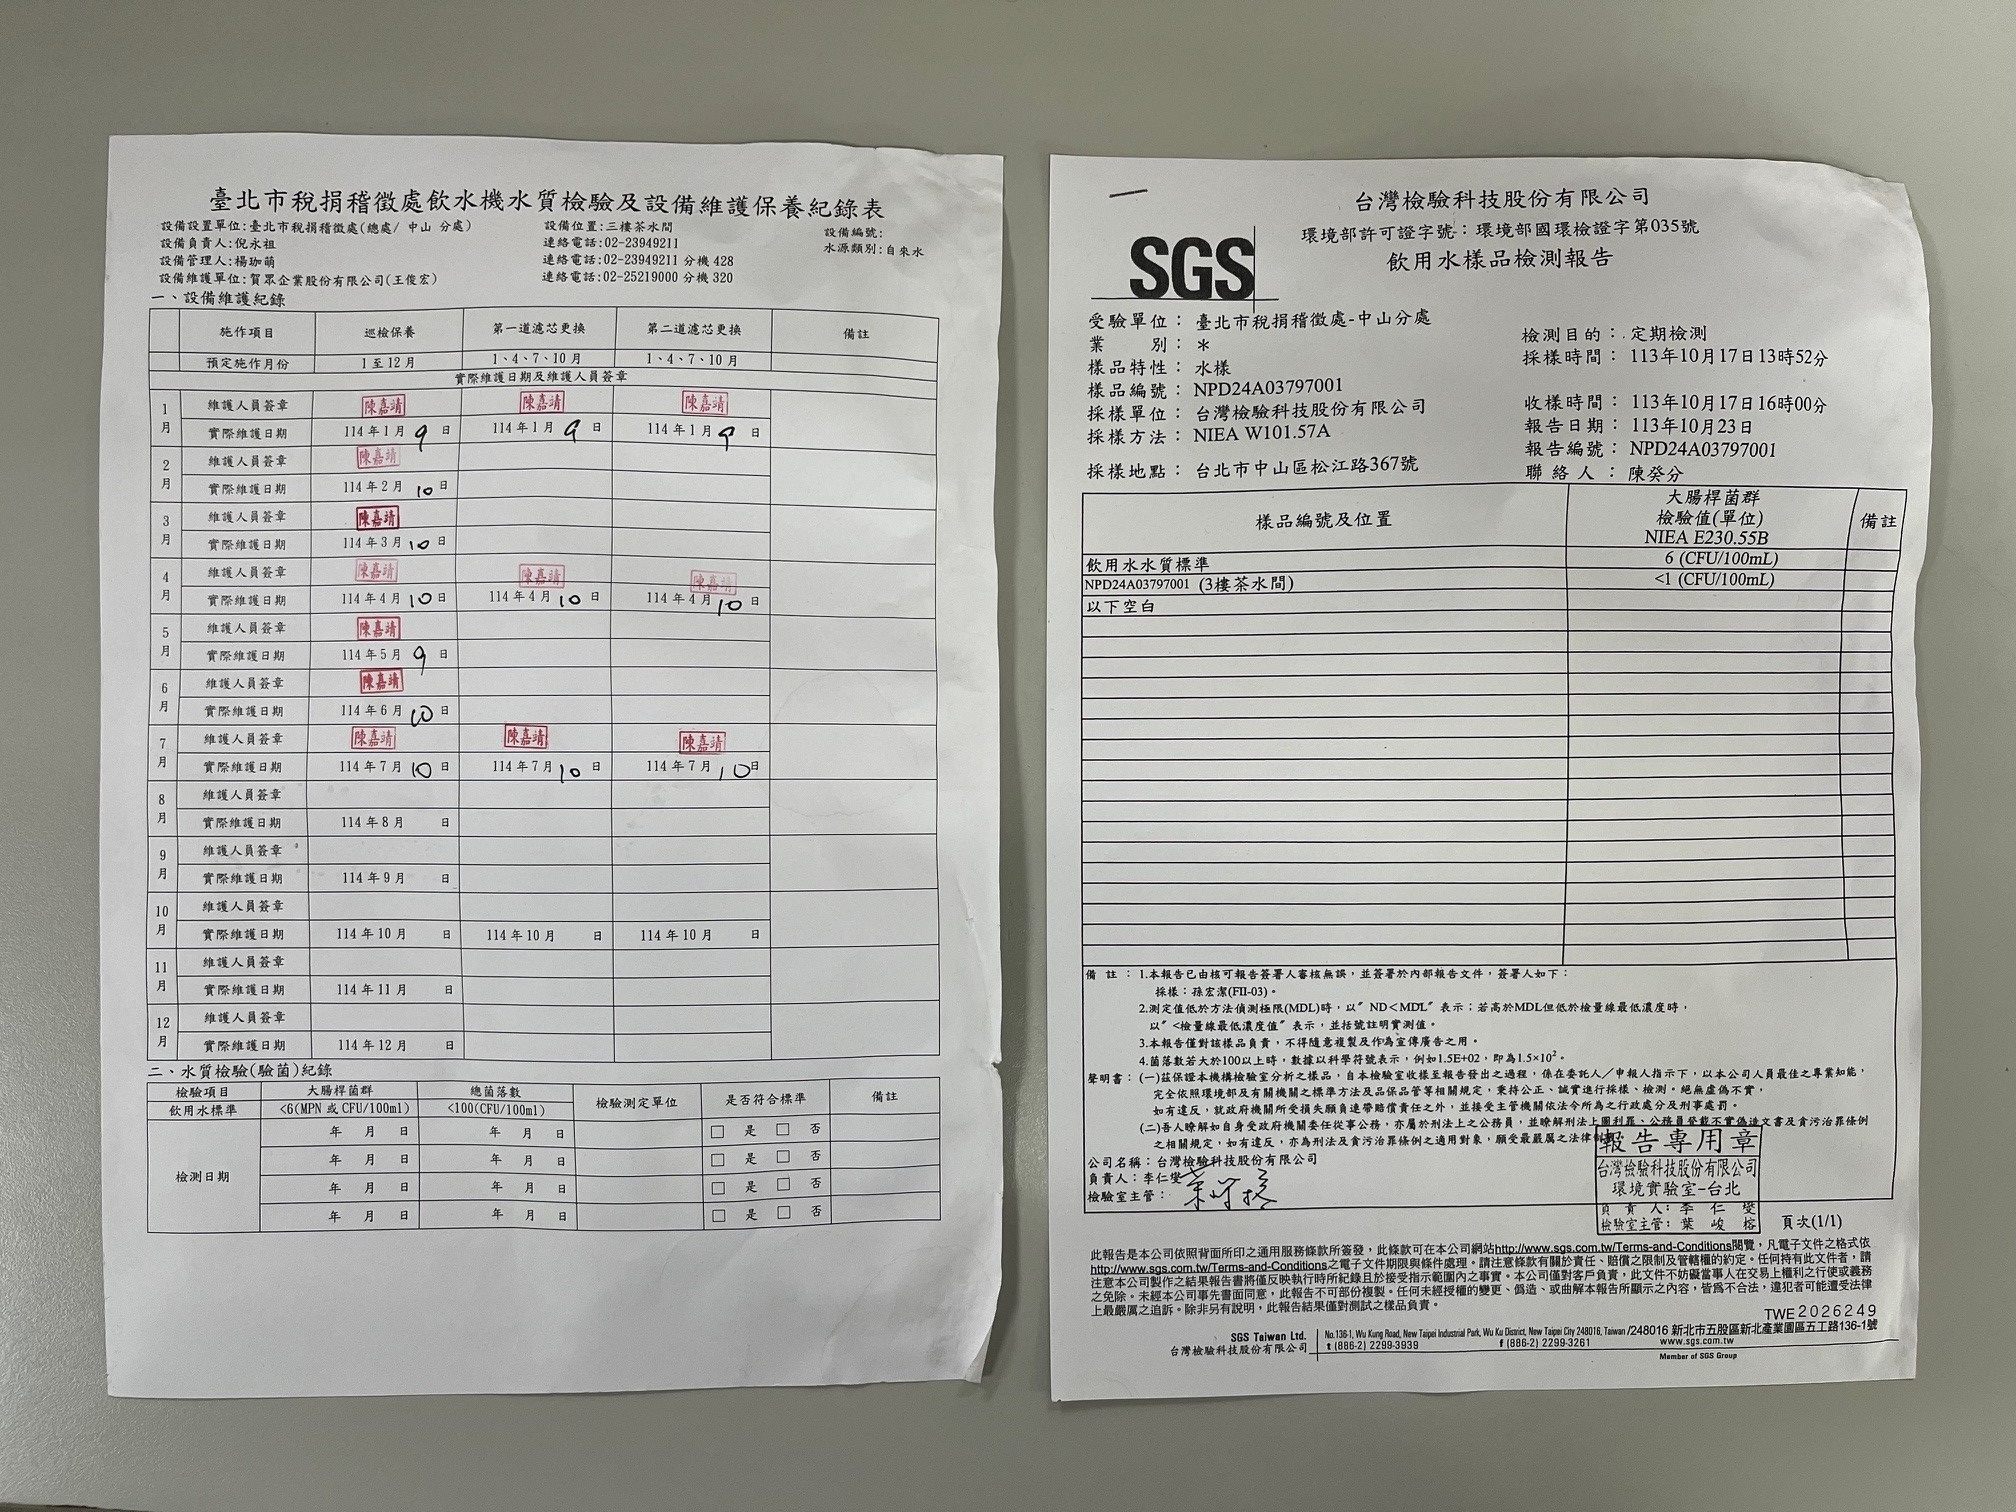 臺北市稅捐稽徵處飲水機水質檢驗及設備維護保養紀錄表
設備設置單位:臺北市稅捐稽徵處(總處/ 中山 分處) 設備位置:三樓茶水間 設備編號:
設備負責人:倪永祖 連絡電話:02-23949211 水源類別:自來水
設備管理人:楊珈萌 連絡電話:02-23949211 分機 428
設備維護單位:賀眾企業股份有限公司(王俊宏) 連絡電話:02-25219000 分機 320
一、設備維護紀錄
施作項目 巡檢保養 第一道濾芯更換 第二道濾芯更換 備註
預定施作月份 1 至 12 月 1、4、7、10 月 1、4、7、10 月
實際維護日期及維護人員簽章
1月 維護人員簽章 陳嘉靖 陳嘉靖 陳嘉靖
實際維護日期 114 年 1 月 9 日 114 年 1 月 9 日 114 年 1 月 9 日
2月 維護人員簽章 陳嘉靖
實際維護日期 114 年 2 月 10 日
3月 維護人員簽章 陳嘉靖
實際維護日期 114 年 3 月 10 日
4月 維護人員簽章 陳嘉靖 陳嘉靖 陳嘉靖
實際維護日期 114 年 4 月 10 日 114 年 4 月 10 日 114 年 4 月 10 日
5月 維護人員簽章 陳嘉靖
實際維護日期 114 年 5 月 9 日
6月 維護人員簽章 陳嘉靖
實際維護日期 114 年 6 月 10 日
7月 維護人員簽章 陳嘉靖 陳嘉靖 陳嘉靖
實際維護日期 114 年 7 月 10 日 114 年 7 月 10 日 114 年 7 月 10 日
8月 維護人員簽章
實際維護日期 114 年 8 月 日
9月 維護人員簽章
實際維護日期 114 年 9 月 日
10月 維護人員簽章
實際維護日期 114 年 10 月 日 114 年 10 月 日 114 年 10 月 日
11月 維護人員簽章
實際維護日期 114 年 11 月 日
12月 維護人員簽章
實際維護日期 114 年 12 月 日
二、水質檢驗(驗菌)紀錄
檢驗項目 大腸桿菌群 總菌落數 檢驗測定單位 是否符合標準 備註
飲用水標準 <6(MPN 或 CFU/100ml) <100(CFU/100ml)
檢測日期 年 月 日 年 月 日 □ 是 □ 否
年 月 日 年 月 日 □ 是 □ 否
年 月 日 年 月 日 □ 是 □ 否
年 月 日 年 月 日 □ 是 □ 否
台灣檢驗科技股份有限公司
環境部許可證字號：環境部國環檢證字第035號
SGS
飲用水樣品檢測報告
受驗單位： 臺北市稅捐稽徵處-中山分處 檢測目的： 定期檢測
業 別： ＊ 採樣時間： 113年10月17日13時52分
樣品特性： 水樣
樣品編號： NPD24A03797001 收樣時間： 113年10月17日16時00分
採樣單位： 台灣檢驗科技股份有限公司 報告日期： 113年10月23日
採樣方法： NIEA W101.57A 報告編號： NPD24A03797001
採樣地點： 台北市中山區松江路367號 聯 絡 人 ： 陳癸分
樣品編號及位置 大腸桿菌群 檢驗值(單位) NIEA E230.55B 備註
飲用水水質標準 6 (CFU/100mL)
NPD24A03797001 (3樓茶水間) <1 (CFU/100mL)
以下空白
備 註 ： 1.本報告已由核可報告簽署人審核無誤，並簽署於內部報告文件，簽署人如下：
採樣：孫宏潔(FII-03)。
2.測定值低於方法偵測極限(MDL)時，以"ND＜MDL"表示；若高於MDL但低於檢量線最低濃度時，
以"<檢量線最低濃度值"表示，並括號註明實測值。
3.本報告僅對該樣品負責，不得隨意複製及作為宣傳廣告之用。
4.菌落數若大於100以上時，數據以科學符號表示，例如1.5E+02，即為1.5×10²。
聲明書： (一)茲保證本機構檢驗室分析之樣品，自本檢驗室收樣至報告發出之過程，係在委託人／申報人指示下，以本公司人員最佳之專業知能，
完全依照環境部及有關機關之標準方法及品保品管等相關規定，秉持公正、誠實進行採樣、檢測。絕無虛偽不實，
如有違反，就政府機關所受損失願負連帶賠償責任之外，並接受主管機關依法令所為之行政處分及刑事處罰。
(二)吾人瞭解如自身受政府機關委任從事公務，亦屬於刑法上之公務員，並瞭解刑法上圖利罪、公務員登載不實偽造文書及貪污治罪條例
之相關規定，如有違反，亦為刑法及貪污治罪條例之適用對象，願受最嚴厲之法律
公司名稱：台灣檢驗科技股份有限公司
負責人：李仁燮
檢驗室主管：
報告專用章
台灣檢驗科技股份有限公司
環境實驗室-台北
負 責 人： 李 仁 燮
檢驗室主管： 葉 峻 榕
頁次(1/1)
此報告是本公司依照背面所印之通用服務條款所簽發，此條款可在本公司網站http://www.sgs.com.tw/Terms-and-Conditions閱覽，凡電子文件之格式依
http://www.sgs.com.tw/Terms-and-Conditions之電子文件期限與條件處理。請注意條款有關於責任、賠償之限制及管轄權的約定。任何持有此文件者，請
注意本公司製作之結果報告書將僅反映執行時所紀錄且於接受指示範圍內之事實。本公司僅對客戶負責，此文件不妨礙當事人在交易上權利之行使或義務
之免除。未經本公司事先書面同意，此報告不可部份複製。任何未經授權的變更、偽造、或曲解本報告所顯示之內容，皆為不合法，違犯者可能遭受法律
上最嚴厲之追訴。除非另有說明，此報告結果僅對測試之樣品負責。
TWE2026249
SGS Taiwan Ltd. No.136-1, Wu Kung Road, New Taipei Industrial Park, Wu Ku District, New Taipei City 248016, Taiwan /248016 新北市五股區新北產業園區五工路136-1號
台灣檢驗科技股份有限公司 t (886-2) 2299-3939 f (886-2) 2299-3261 www.sgs.com.tw
Member of SGS Group